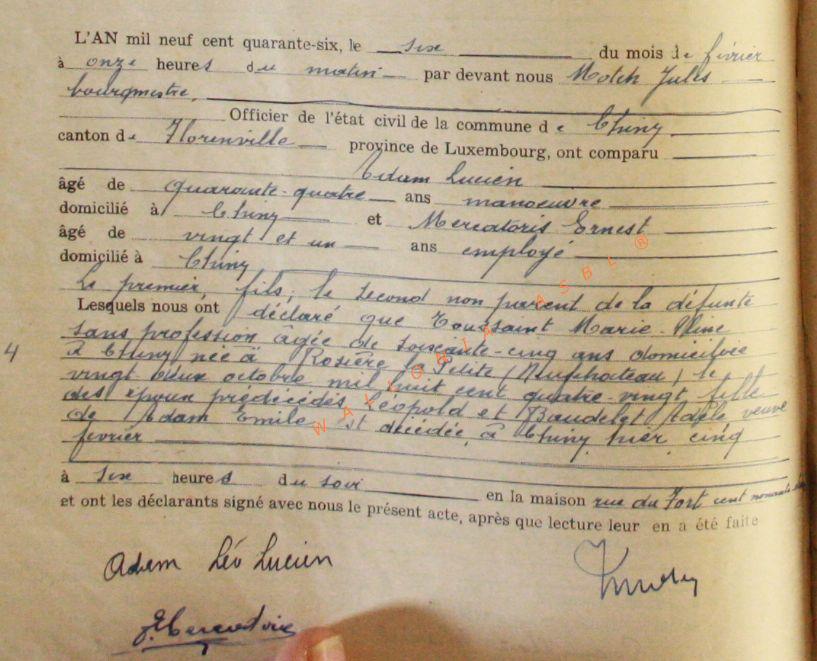 L'AN mil neuf cent quarante-six, le six du mois de février
à onze heures du matin par devant nous Molch Jules
bourgmestre,
Officier de l'état civil de la commune de Chiny
canton de Florenville province de Luxembourg, ont comparu
Adam Lucien
âgé de quarante-quatre ans manoeuvre
domicilié à Chiny et Mercatoris Ernest
âgé de vingt et un ans employé
domicilié à Chiny
Le premier, fils, le second non parent de la défunte
Lesquels nous ont déclaré que Toussaint Marie-
sans profession âgée de soixante-cinq ans domiciliée
4 à Chiny née à Rosière la Petite (Neufchateau) le
vingt deux octobre mil huit cent quatre-vingt, fille
des époux prédécédés Léopold et Baudelet Adèle veuve
de Adam Emile est décédée à Chiny hier cinq
février
à six heures du soir en la maison rue du Fort cent
et ont les déclarants signé avec nous le présent acte, après que lecture leur en a été faite
Adam Léo Lucien
E. Mercatoris
WALLONIA ASBL ®